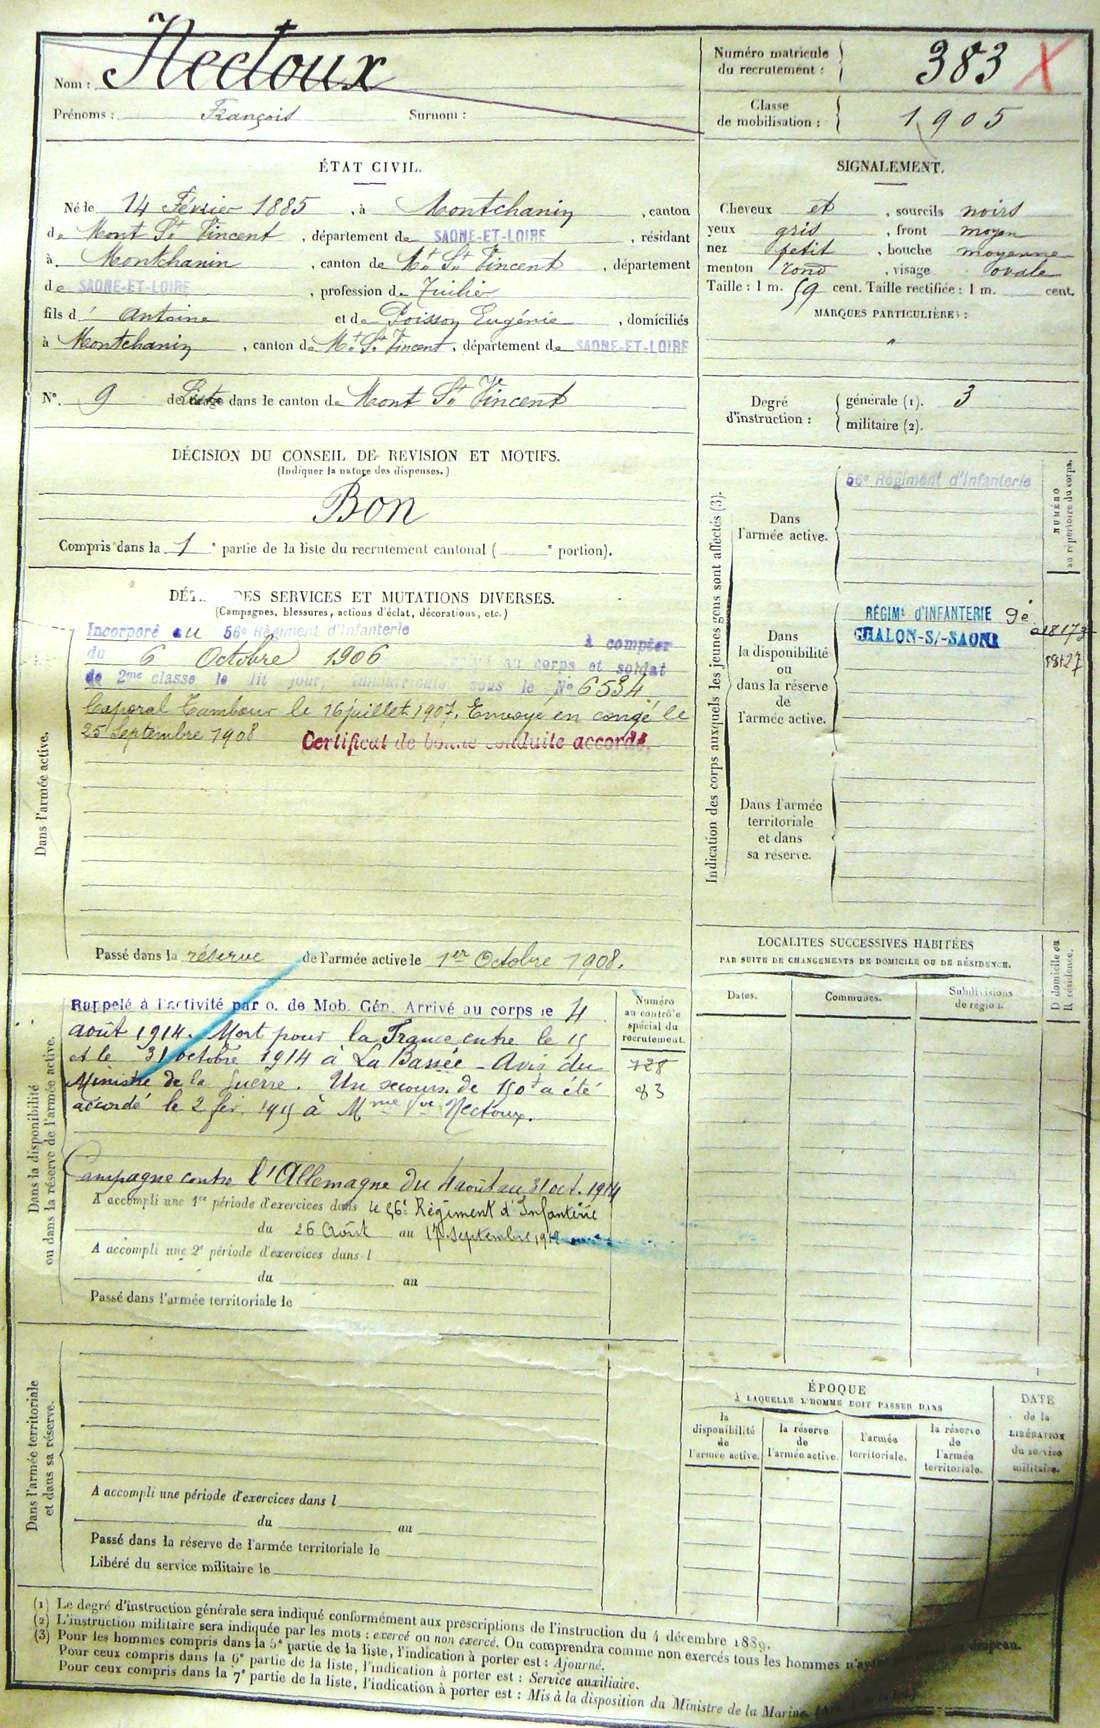 Nom : Nectoux
Prénoms : François Surnom :
Numéro matricule du recrutement : 383 X
Classe de mobilisation : 1905
ÉTAT CIVIL.
Né le 14 Février 1885, à Montchanin, canton
de Mont St Vincent, département de SAONE-ET-LOIRE, résidant
à Montchanin, canton de Mt St Vincent, département
de SAONE-ET-LOIRE, profession de Tuilier
fils d' Antoine et de Poisson Eugénie, domiciliés
à Montchanin, canton de Mt St Vincent, département de SAONE-ET-LOIRE
N° 9 de Liste dans le canton de Mont St Vincent
SIGNALEMENT.
Cheveux et , sourcils noirs
yeux gris , front moyen
nez petit , bouche moyenne
menton rond , visage ovale
Taille : 1 m. 59 cent. Taille rectifiée : 1 m. cent.
MARQUES PARTICULIÈRES :
"
Degré d'instruction :
générale (1). 3
militaire (2).
DÉCISION DU CONSEIL DE REVISION ET MOTIFS.
(Indiquer la nature des dispenses.)
Bon
Compris dans la 1e partie de la liste du recrutement cantonal ( e portion).
Indication des corps auxquels les jeunes gens sont affectés (3).
Dans l'armée active.
56e Régiment d'Infanterie
NUMÉRO au répertoire du corps.
Dans la disponibilité ou dans la réserve de l'armée active.
RÉGIMt d'INFANTERIE 9e
CHALON-S/-SAONE
Dans l'armée territoriale et dans sa réserve.
DES SERVICES ET MUTATIONS DIVERSES.
(Campagnes, blessures, actions d'éclat, décorations, etc.)
Dans l'armée active.
Incorporé au 56e Régiment d'Infanterie à compter
du 6 Octobre 1906 au corps et soldat
de 2me classe le dit jour, immatriculé sous le No 6534
Caporal Tambour le 16 juillet 1907. Envoyé en congé le
25 Septembre 1908 Certificat de bonne conduite accordé.
Passé dans la réserve de l'armée active le 1er Octobre 1908.
Dans la disponibilité ou dans la réserve de l'armée active.
Rappelé à l'activité par o. de Mob. Gén. Arrivé au corps le 4
août 1914. Mort pour la France entre le 15
et le 31 octobre 1914 à La Bassée - Avis du
Ministre de la Guerre. Un secours de 150f a été
accordé le 2 fév. 1915 à Mme Vve Nectoux.
Numéro au contrôle spécial du recrutement.
728
83
Campagne contre l'Allemagne du 4 août au 31 oct. 1914
A accompli une 1re période d'exercices dans le 56e Régiment d'Infanterie
du 26 Août au 17 Septembre
A accompli une 2e période d'exercices dans l
du au
Passé dans l'armée territoriale le
LOCALITÉS SUCCESSIVES HABITÉES
PAR SUITE DE CHANGEMENTS DE DOMICILE OU DE RÉSIDENCE.
Dates. Communes. Subdivisions de région.
D domicile ou R résidence.
Dans l'armée territoriale et dans sa réserve.
A accompli une période d'exercices dans l
du au
Passé dans la réserve de l'armée territoriale le
Libéré du service militaire le
ÉPOQUE
À LAQUELLE L'HOMME DOIT PASSER DANS
la disponibilité de l'armée active.
la réserve de l'armée active.
l'armée territoriale.
la réserve de l'armée territoriale.
DATE de la LIBÉRATION du service militaire.
(1) Le degré d'instruction générale sera indiqué conformément aux prescriptions de l'instruction du 4 décembre 1889.
(2) L'instruction militaire sera indiquée par les mots : exercé ou non exercé. On comprendra comme non exercés tous les hommes drapeau.
(3) Pour les hommes compris dans la 5e partie de la liste, l'indication à porter est : Ajourné.
Pour ceux compris dans la 6e partie de la liste, l'indication à porter est : Service auxiliaire.
Pour ceux compris dans la 7e partie de la liste, l'indication à porter est : Mis à la disposition du Ministre de la Marine